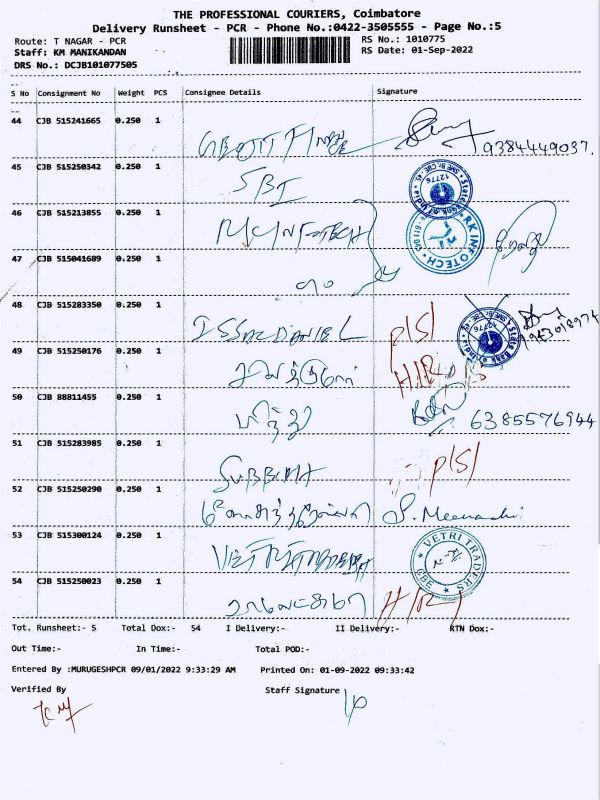 THE PROFESSIONAL COURIERS, Coimbatore
Delivery Runsheet - PCR - Phone No.:0422-3505555 - Page No.:5
Route: T NAGAR - PCR RS No.: 1010775
Staff: KM MANIKANDAN RS Date: 01-Sep-2022
DRS No.: DCJB101077505
S No Consignment No Weight PCS Consignee Details Signature
44 CJB 515241665 0.250 1
9384449037.
45 CJB 515250342 0.250 1 SBI
State Bank of India 12776
46 CJB 515213855 0.250 1 RK INFOTECH
RK INFOTECH
47 CJB 515041689 0.250 1
48 CJB 515283350 0.250 1 P/S/
State Bank of India 12776
49 CJB 515250176 0.250 1
50 CJB 88811455 0.250 1 6385576944
51 CJB 515283985 0.250 1 SUBBIAH P/S/
52 CJB 515250290 0.250 1 S. Meenakshi
53 CJB 515300124 0.250 1
VETRI TRADERS CBE
54 CJB 515250023 0.250 1
Tot. Runsheet:- 5 Total Dox:- 54 I Delivery:- II Delivery:- RTN Dox:-
Out Time:- In Time:- Total POD:-
Entered By :MURUGESHPCR 09/01/2022 9:33:29 AM Printed On: 01-09-2022 09:33:42
Verified By Staff Signature